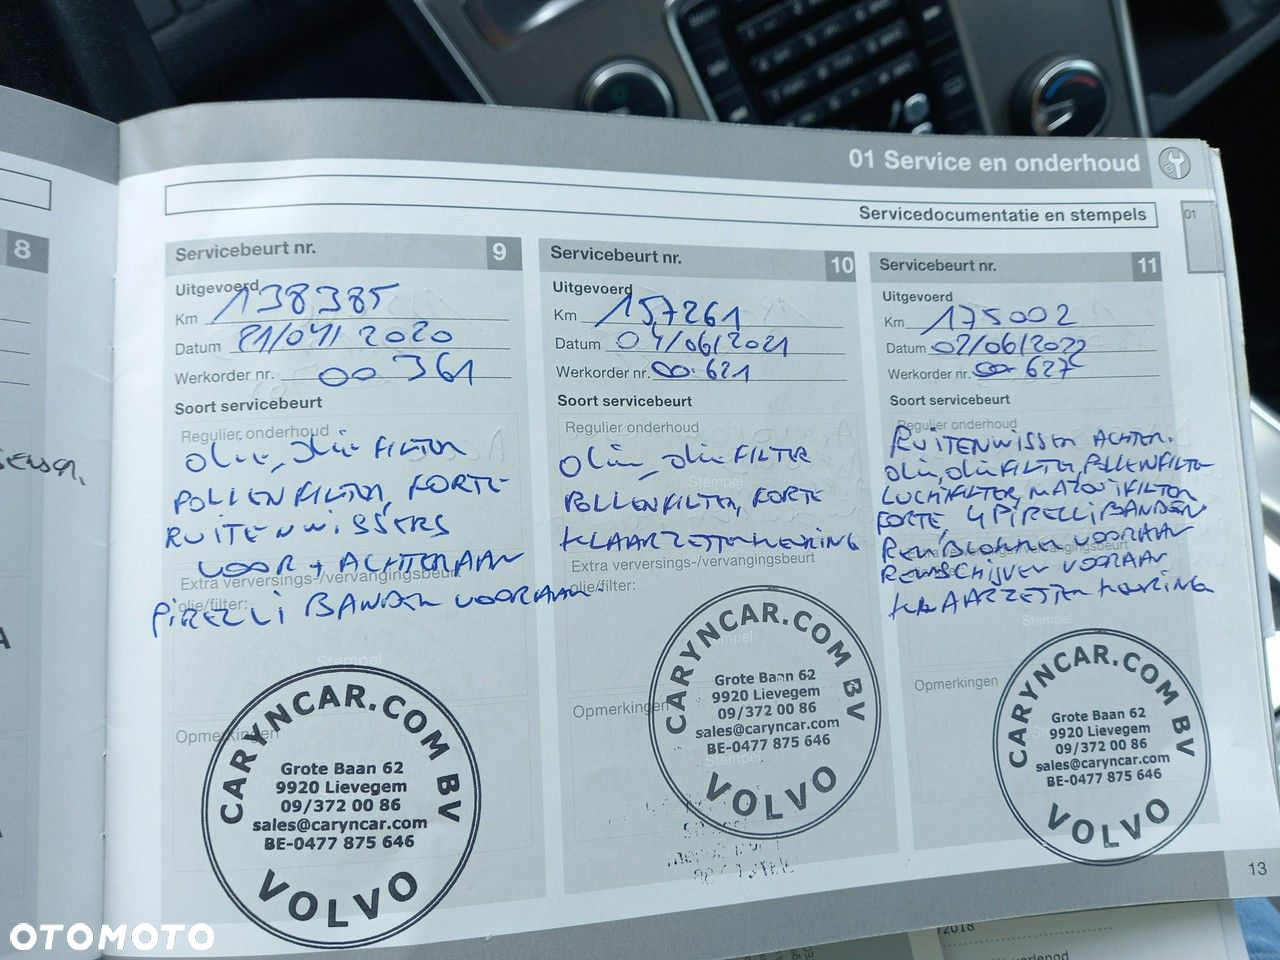 01 Service en onderhoud
01
Servicedocumentatie en stempels
8
Servicebeurt nr. 9
Uitgevoerd
Km 138385
Datum 21/04/2020
Werkorder nr. 00 361
Soort servicebeurt
Regulier onderhoud
Olie, Olie FILTER
POLLENFILTER, FORTE
RUITENWISSERS
VOOR + ACHTERAAN
Extra verversings-/vervangingsbeurt
olie/filter:
PIRELLI BANDEN VOORAAN
Stempel
Opmerkingen
CARYNCAR.COM BV
Grote Baan 62
9920 Lievegem
09/372 00 86
sales@caryncar.com
BE-0477 875 646
VOLVO
Servicebeurt nr. 10
Uitgevoerd
Km 157261
Datum 04/06/2021
Werkorder nr. 00 621
Soort servicebeurt
Regulier onderhoud
Olie, Olie FILTER
Stempel
POLLENFILTER, FORTE
KLAARZETTEN KEURING
Extra verversings-/vervangingsbeurt
olie/filter:
Stempel
Opmerkingen
Stempel
CARYNCAR.COM BV
Grote Baan 62
9920 Lievegem
09/372 00 86
sales@caryncar.com
BE-0477 875 646
VOLVO
Servicebeurt nr. 11
Uitgevoerd
Km 175002
Datum 02/06/2022
Werkorder nr. 00 627
Soort servicebeurt
Regulier onderhoud
RUITENWISSER ACHTER.
Olie, Olie FILTER, POLLENFILTER
LUCHTFILTER, MAZOUTFILTER
FORTE, 4 PIRELLI BANDEN
REMBLOKKEN VOORAAN
Extra verversings-/vervangingsbeurt
REMSCHIJVEN VOORAAN
KLAARZETTEN KEURING
Stempel
Opmerkingen
CARYNCAR.COM BV
Grote Baan 62
9920 Lievegem
09/372 00 86
sales@caryncar.com
BE-0477 875 646
VOLVO
13
/2018
OTOMOTO